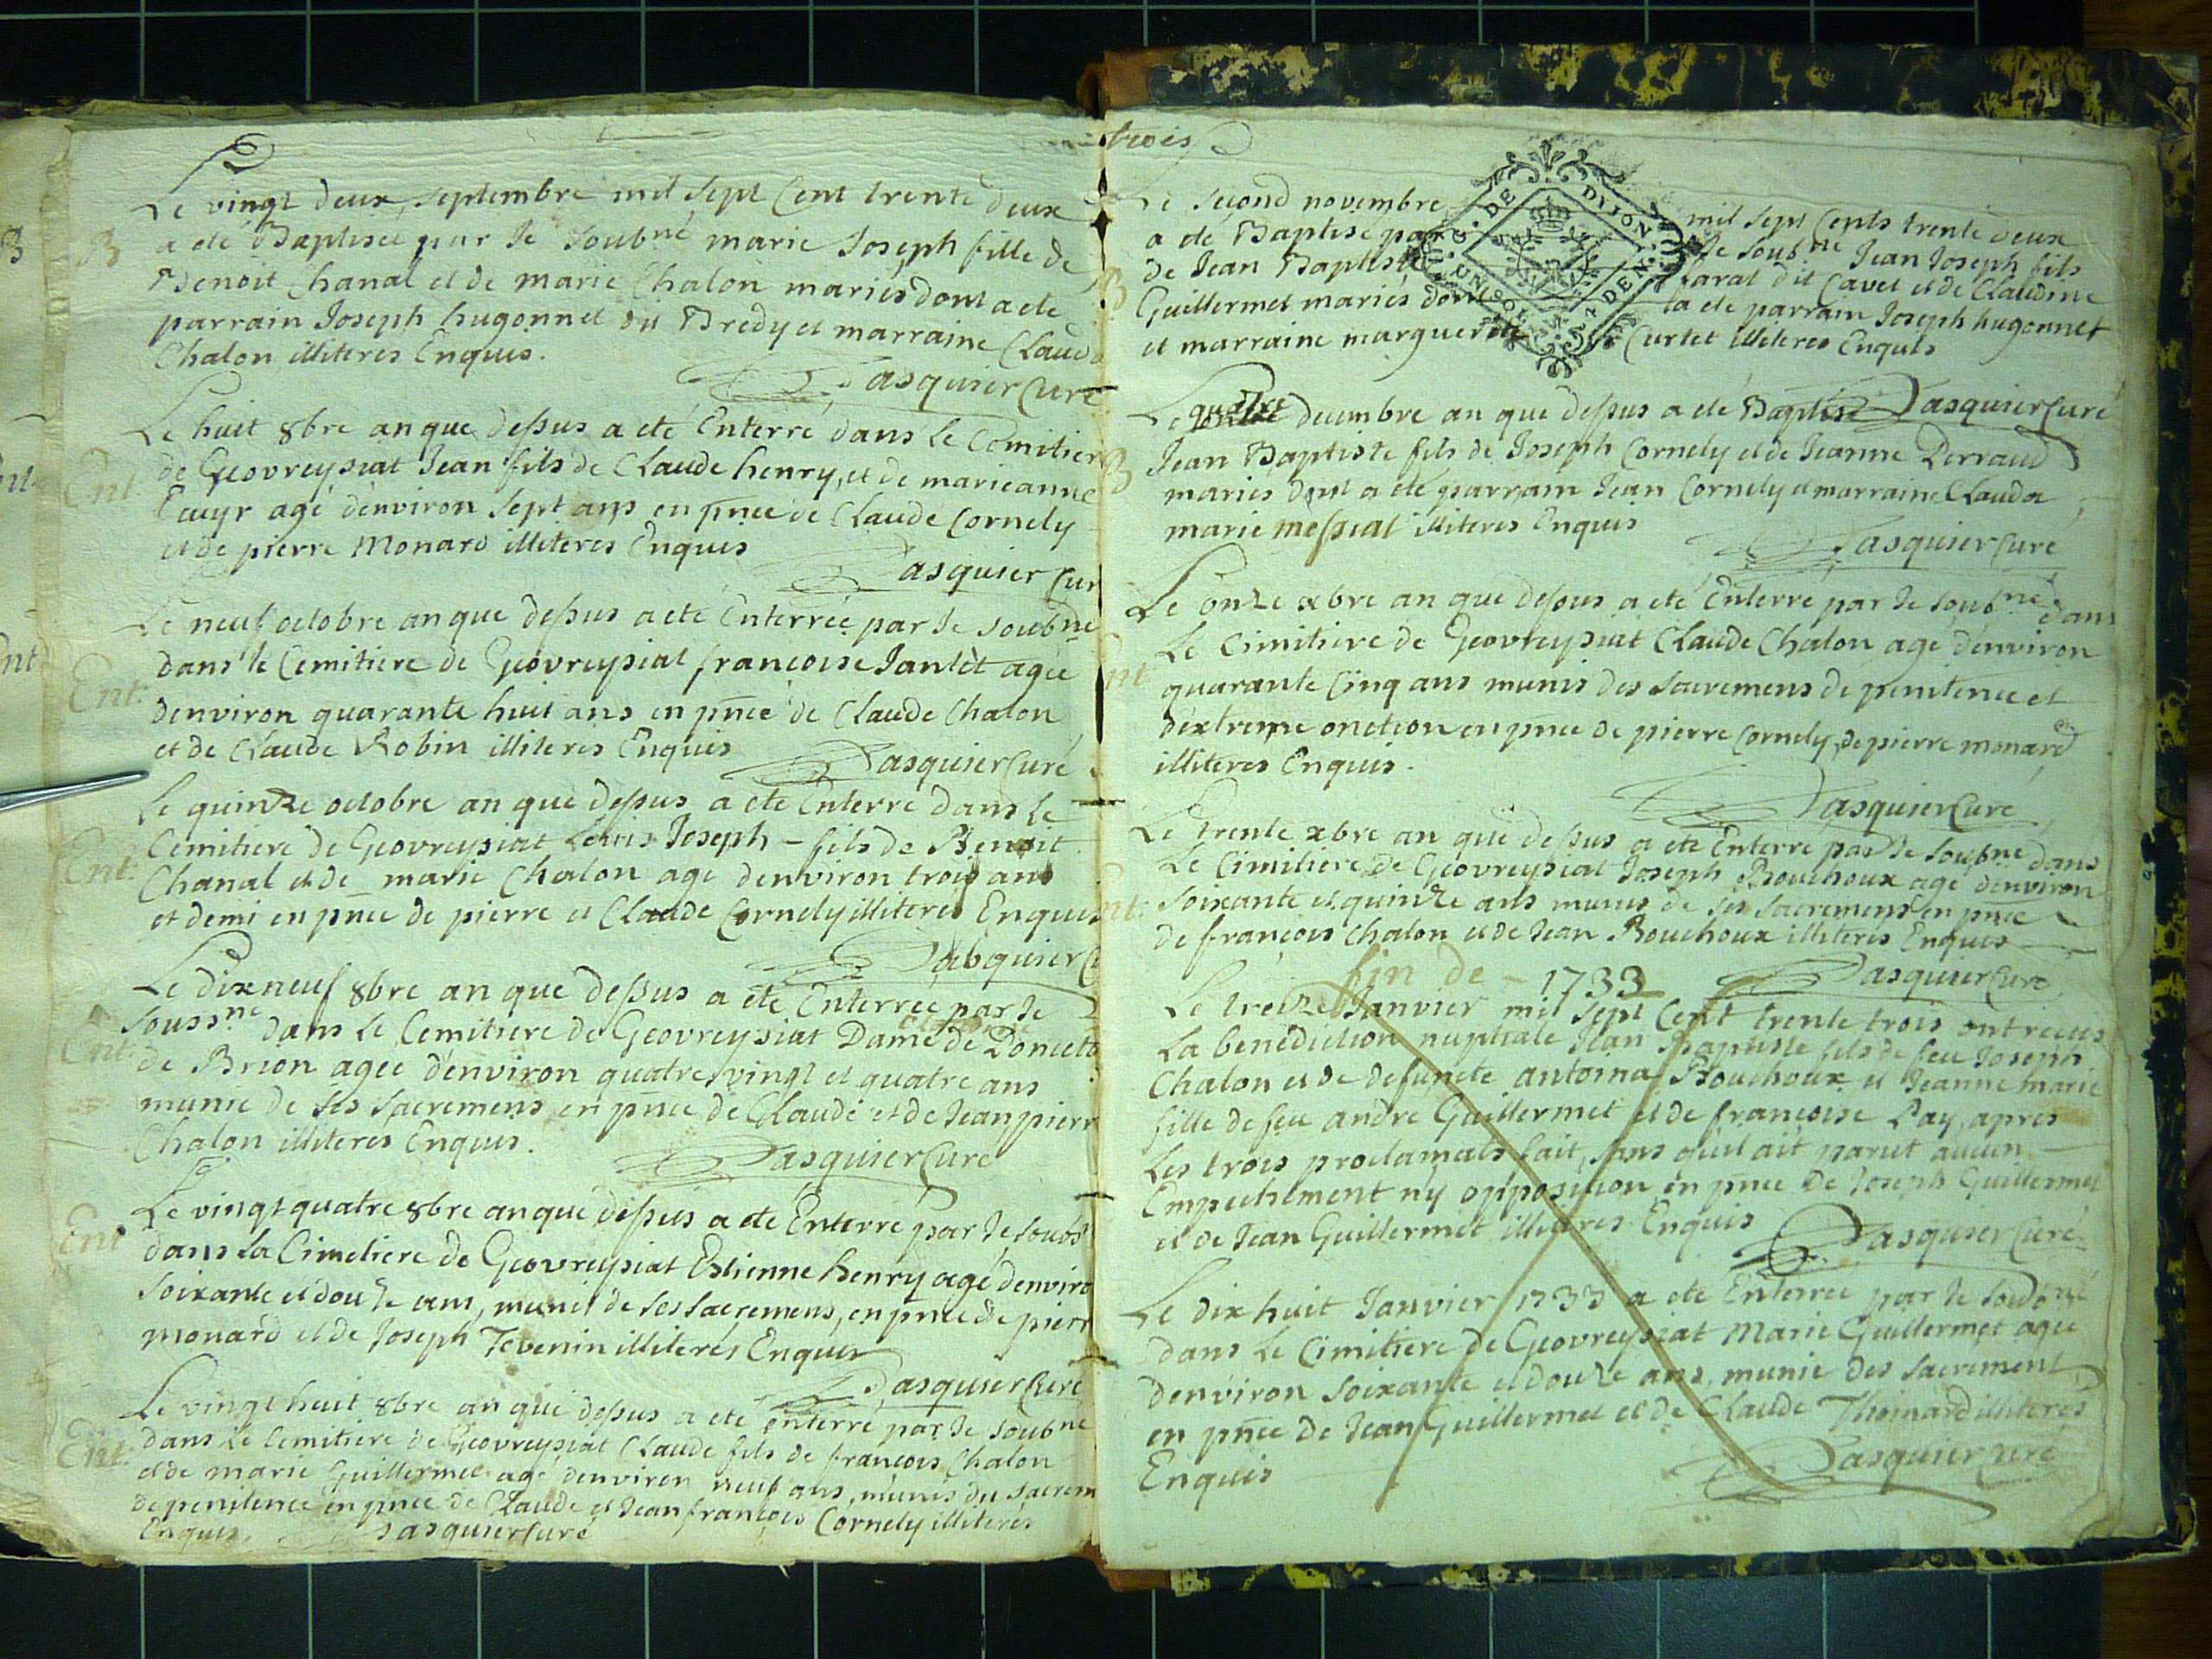 Le vingt deux, septembre mil sept Cent trente deux
B a eté Baptisée par Je Soubné marie Joseph fille de
Benoit Chanal et de marie Chalon mariés dont a ete
parrain Joseph hugonnet du Bredy et marraine Clauda
Chalon illiteres Enquis.
Pasquier Curé
Le huit 8bre an que dessus a eté Enterré dans le Cemitiere
Ent de Geovreysiat Jean fils de Claude henry, et de marieanne
agé d'environ sept ans en pnce de Claude Cornely
et de pierre Monard illiteres Enquis
Pasquier Cur
Le neuf octobre an que dessus a eté Enterrée par Je soubné
Ent: dans le Cemitiere de Geovreysiat françoise Jantet agée
denviron quarante huit ans en pnce de Claude Chalon
et de Claude Robin illiteres Enquis
Pasquier Curé
Le quinze octobre an que dessus a ete Enterré dans le
Ent: Cemitiere de Geovreysiat Louis Joseph - fils de Benoit
Chanal et de marie Chalon agé denviron trois ans
et demi en pnce de pierre et Claude Cornely illiteres Enquis
Pasquier C
Le dix neuf 8bre an que dessus a ete Enterrée par Je
soussné dans le Cemitiere de Geovreysiat Dame de
Ent: de Brion agée d'environ quatre vingt et quatre ans
munie de ses sacremens en pnce de Claude et de Jean pierr
Chalon illiteres Enquis.
Pasquier Curé
Le vingt quatre 8bre an que dessus a ete Enterré par Je soubs
Ent dans la Cimetiere de Geovreysiat Estienne henry agé denviro
soixante et douze ans, muni de ses sacremens, en pnce de pierr
monard et de Joseph Tevenin illiterés Enquis
Pasquier Curé
Le vingt huit 8bre an que dessus a ete enterré par Je soubné
Ent: dans le Cemitiere de Geovreysiat Claude fils de françois Chalon
et de marie Guillermet agé denviron neuf ans, munis du sacrem
de penitence en pnce de Claude et Jean françois Cornely illiteres
Enquis. Pasquier Curé
trois
Le second novembre mil sept Cents trente deux
a eté Baptisé par Je Soubné Jean Joseph fils
B de Jean Baptiste Tarat dit Cavet et de Claudine
Guillermet mariés dont a ete parrain Joseph hugonnet
et marraine marguerite Curtet illiteres Enquis
G. DE DIJON
Pasquier Curé
Le quatre decembre an que dessus a eté Baptisé
B Jean Baptiste fils de Joseph Cornely et de Jeanne Perraud
mariés dont a eté parrain Jean Cornely et marraine Clauda
marie messiat illiteres Enquis
Pasquier Curé
Le onze xbre an que dessus a eté Enterré par Je soubné dans
Ent Le Cimitiere de Geovreysiat Claude Chalon agé d'environ
quarante Cinq ans munis des sacremens de penitence et
d'extreme onction en pnce de pierre Cornely, et de pierre monard
illiteres Enquis.
Pasquier Curé
Le trente xbre an que dessus a ete Enterré par Je soubné dans
Le Cimitiere de Geovreysiat Joseph Bouchoux agé denviron
Ent: Soixante et quinze ans munis de ses sacremens en pnce
de françois chalon et de Jean Bouchoux illiteres Enquis
Pasquier Curé
fin de - 1733
Le treize Janvier mil sept Cent trente trois ont reçus
La benediction nuptiale Jean Baptiste fils de feu Joseph
Chalon et de defuncte antoina Bouchoux et Jeanne marie
fille de feu andré Guillermet et de françoise Pay, apres
Les trois proclamats fait, sans qu'il ait parut aucun
Empechement n'y opposition en pnce De Joseph Guillermet
et de Jean Guillermet illiteres Enquis
Pasquier Curé
Le dix huit Janvier 1733 a ete Enterrée par Je soubné
dans Le Cimitiere de Geovreysiat Marie Guillermet agée
denviron soixante et douze ans, munie des sacrement
en pnce de Jean Guillermet et de Claude Thoinard illiteres
Enquis
Pasquier Curé